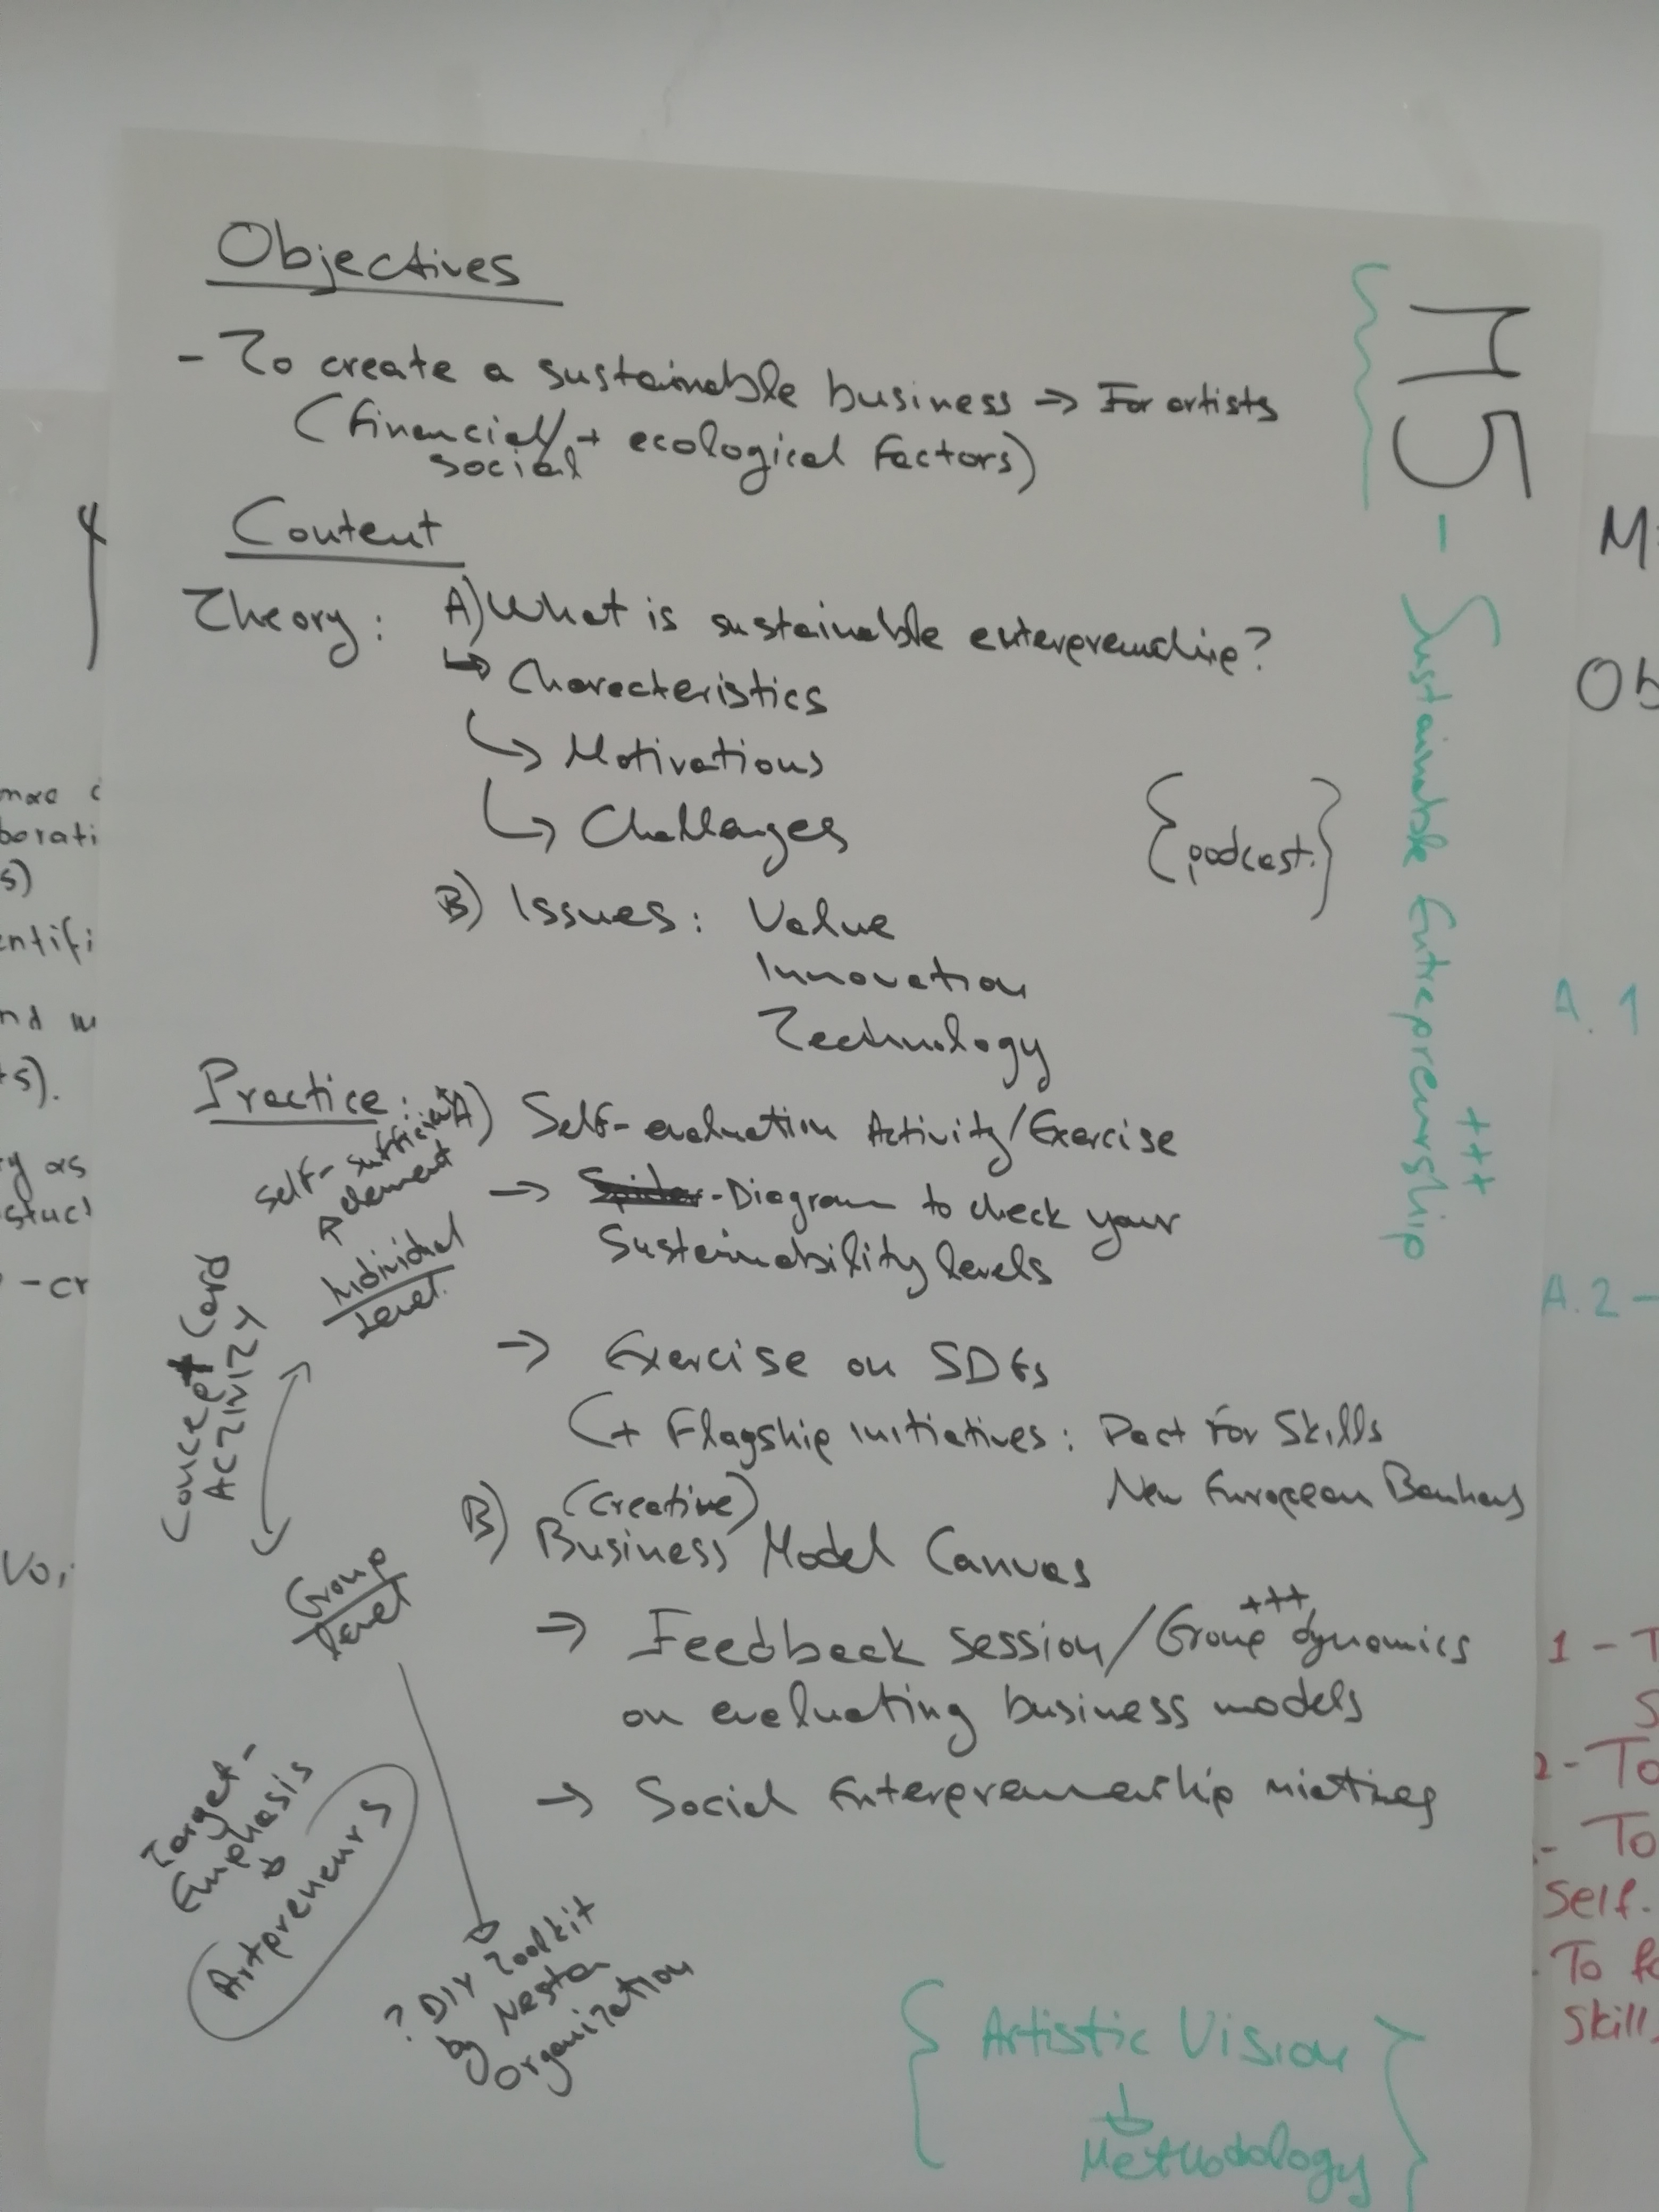 Objectives
- To create a sustainable business → For artists
(financial/social + ecological factors)
Content
Theory: A) What is sustainable
↳ Characteristics
↳ Motivations
↳ Challenges
{podcast.}
B) Issues: Value
Innovation
Technology
Practice: A) Self-evaluation Activity/Exercise
→ -Diagram to check your
Sustainability levels
→ Exercise on SDGs
↳ Flagship initiatives: Pact for Skills
New European Bauhaus
B) (Creative)
Business Model Canvas
→ Feedback session/Group dynamics +++
on evaluating business models
→ Social
self-sufficient
element
Individual
level
Concept Card
ACTIVITY
Group
level
Target-
Emphasis
Artpreneurs
? DIY Toolkit
by Nesta
organization
II 5 - Sustainable Entrepreneurship
+++
{ Artistic Vision
↓
Methodology }
M
Ob
A.1
A.2 -
1 - T
S
2 - To
- To
Self-
To fo
Skill
borati
s)
entifi
nd
s).
y as
- cr